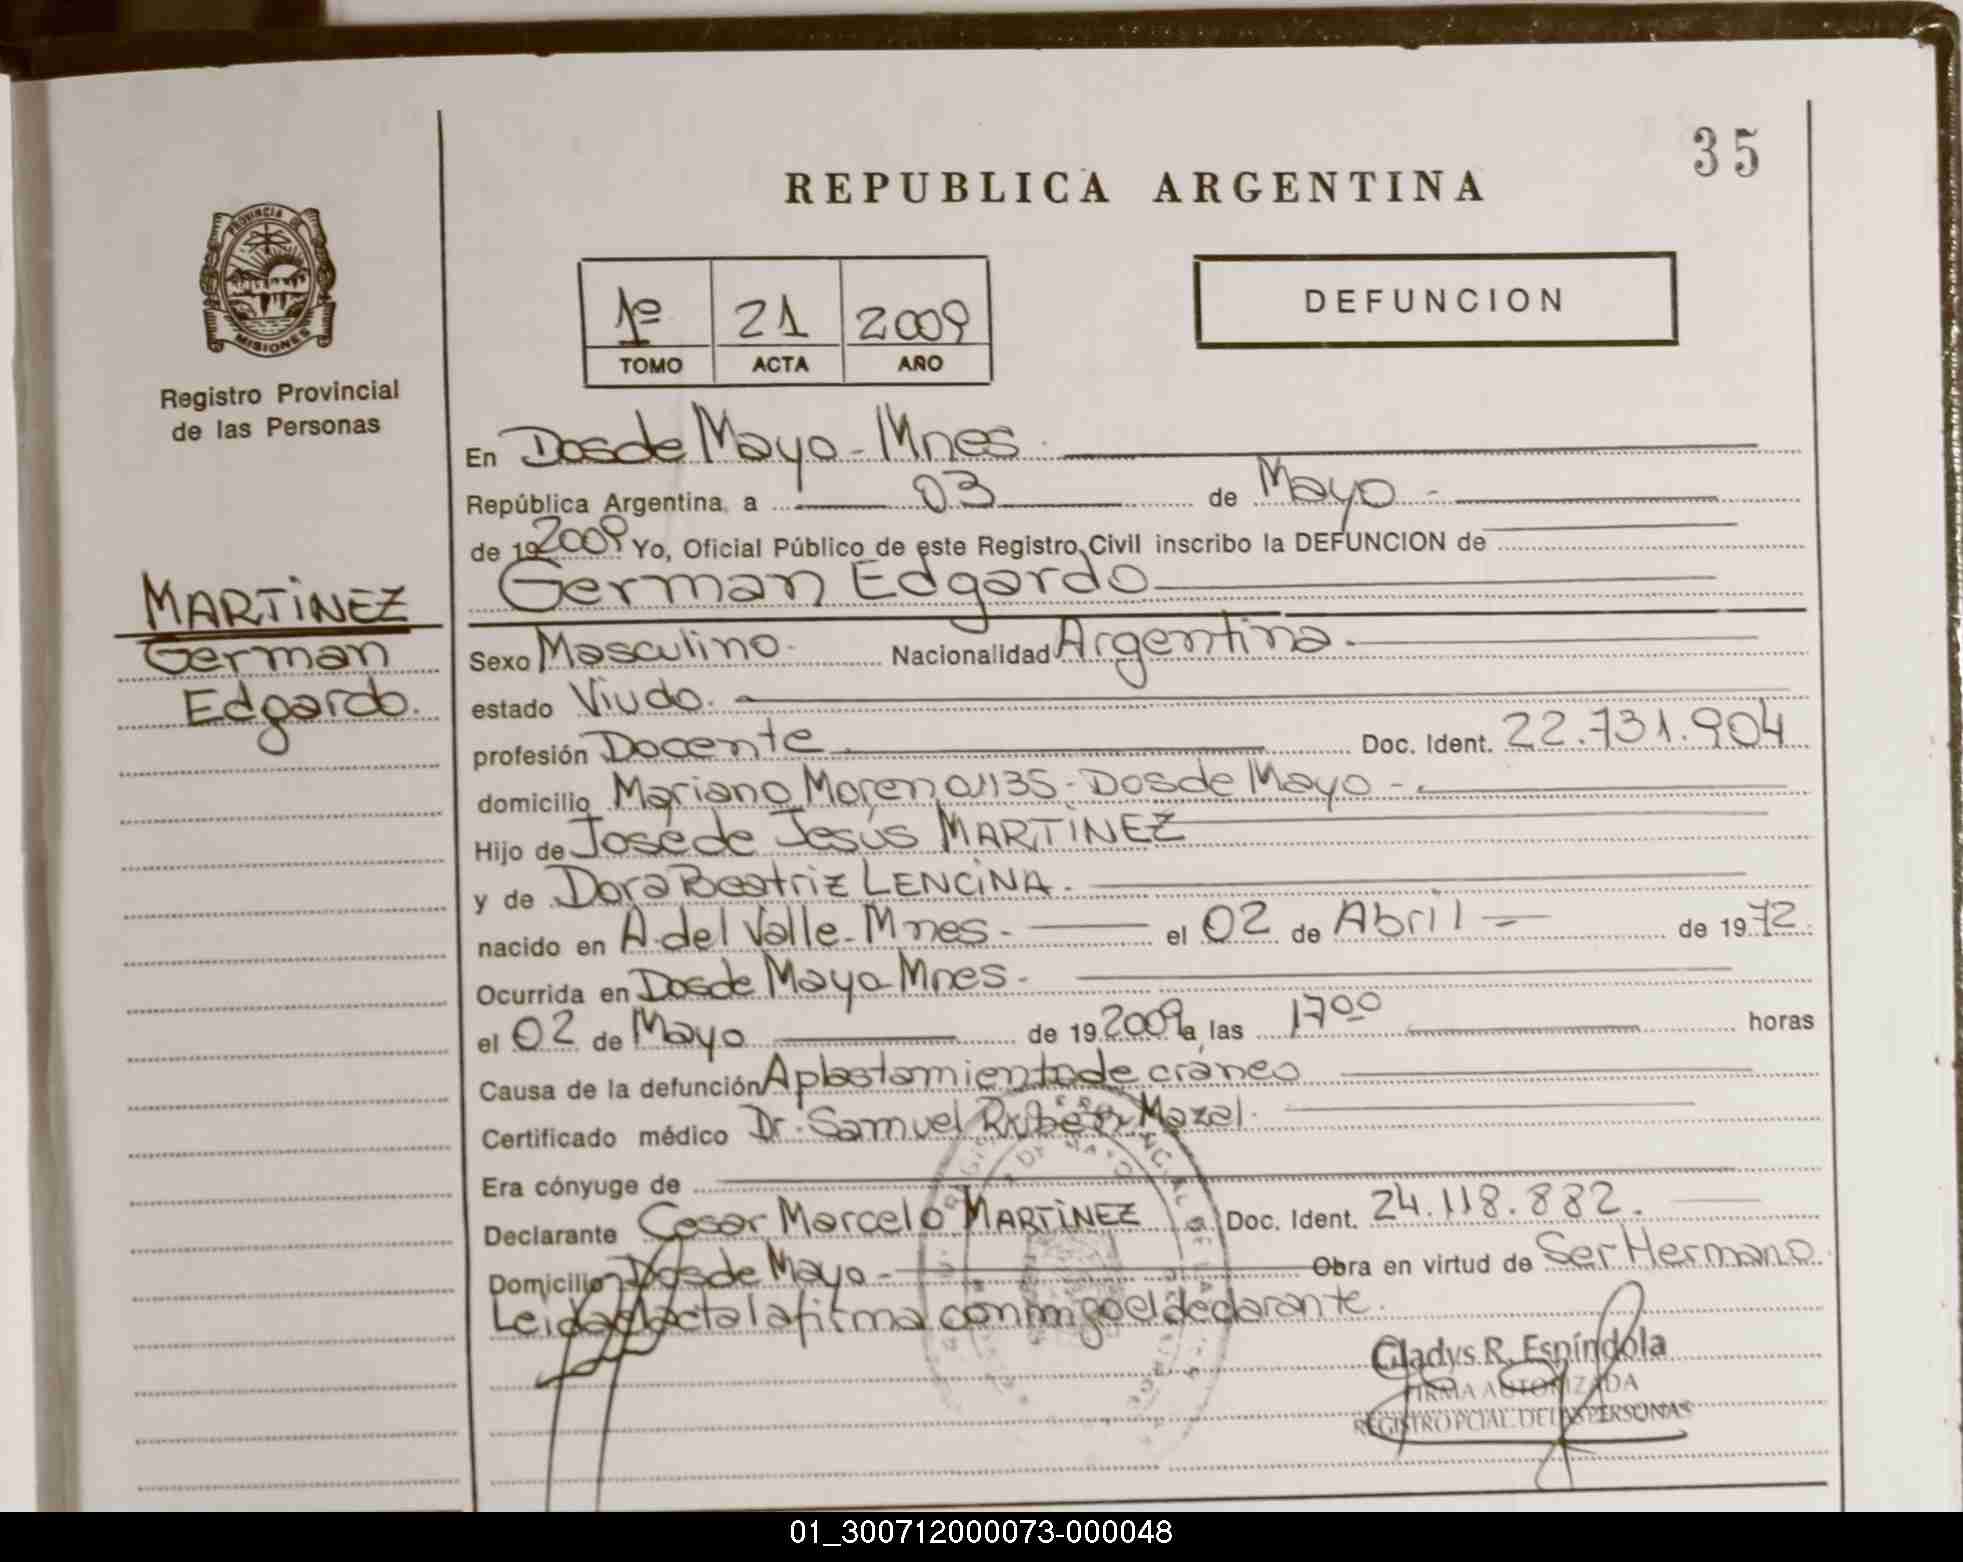 35
REPUBLICA ARGENTINA
PROVINCIA DE
MISIONES
Registro Provincial
de las Personas
1º 21 2009
TOMO ACTA AÑO
DEFUNCION
En Dos de Mayo - Mnes.
República Argentina, a 03 de Mayo -
de 192009 Yo, Oficial Público de este Registro Civil inscribo la DEFUNCION de
German Edgardo
MARTINEZ
German
Edgardo.
Sexo Masculino. Nacionalidad Argentina.
estado Viudo.
profesión Docente. Doc. Ident. 22.731.904
domicilio Mariano Moreno 1135 - Dos de Mayo -
Hijo de José de Jesús MARTINEZ
y de Dora Beatriz LENCINA.
nacido en A. del Valle - Mnes. el 02 de Abril de 1972.
Ocurrida en Dos de Mayo Mnes.
el 02 de Mayo de 192009 a las 1700 horas
Causa de la defunción Aplastamiento de cráneo
Certificado médico Dr. Samuel Rubén Mazal.
Era cónyuge de
Declarante Cesar Marcelo MARTINEZ Doc. Ident. 24.118.882.
Domicilio Dos de Mayo - Obra en virtud de Ser Hermano.
Leida el acta la firma conmigo el declarante.
Gladys R. Espíndola
FIRMA AUTORIZADA
REGISTRO PCIAL. DE LAS PERSONAS
01_300712000073-000048